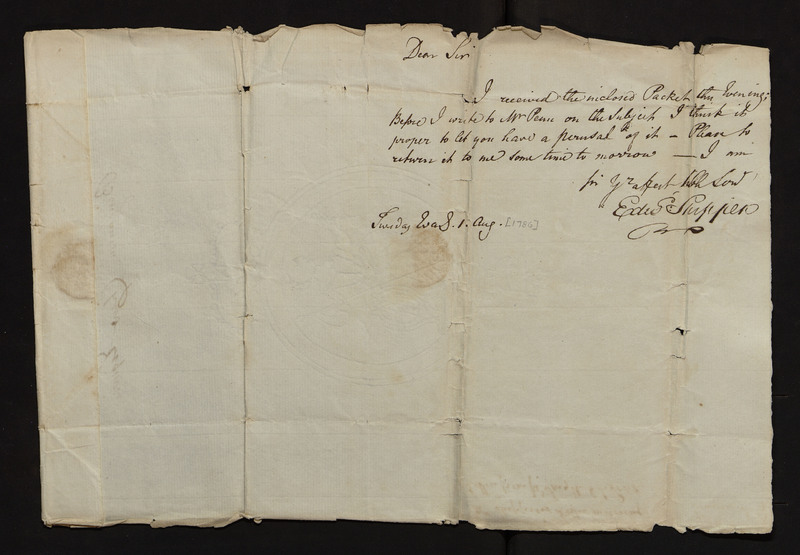 Dear Sir
I received the inclosed Packet this Evening;
Before I write to Mr Penn on the Subject I think it
proper to let you have a perusal of it – Please to
return it to me some time to morrow — I am
Sir Yr affect hble
Edwd Shippen
Tuesday 1. Aug. [1786]